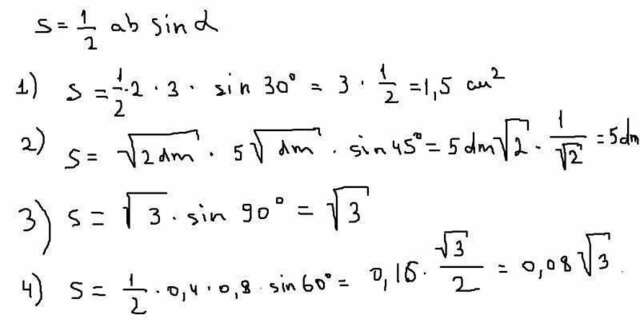 S = 1/2 ab sin α
1) S = 1/2 · 2 · 3 · sin 30° = 3 · 1/2 = 1,5 см²
2) S = √(2dm) · 5√(dm) · sin 45° = 5dm√2 · 1/√2 = 5dm
3) S = √3 · sin 90° = √3
4) S = 1/2 · 0,4 · 0,8 · sin 60° = 0,16 · √3/2 = 0,08√3